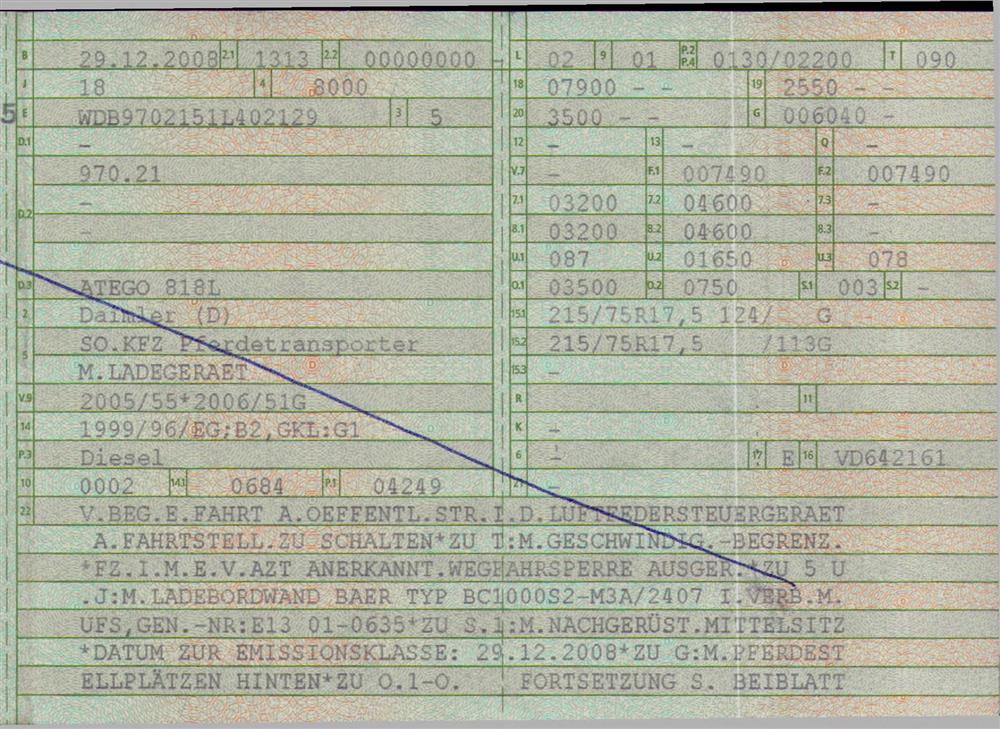 B 29.12.2008 2.1 1313 2.2 00000000 - L 02 9 01 P.2 P.4 0130/02200 T 090
J 18 4 8000 18 07900 - - 19 2550 - -
5 E WDB9702151L402129 3 5 20 3500 - - G 006040 -
D.1 - 12 - 13 - Q -
970.21 V.7 - F.1 007490 F.2 007490
D.2 - 7.1 03200 7.2 04600 7.3 -
- 8.1 03200 8.2 04600 8.3 -
U.1 087 U.2 01650 U.3 078
D.3 ATEGO 818L O.1 03500 O.2 0750 S.1 003 S.2 -
2 Daimler (D) 15.1 215/75R17,5 124/ G
SO.KFZ Pferdetransporter 15.2 215/75R17,5 /113G
5 M.LADEGERAET 15.3 -
V.9 2005/55*2006/51G R 11
14 1999/96/EG;B2,GKL:G1 K -
P.3 Diesel 6 - 17 E 16 VD642161
10 0002 14.1 0684 P.1 04249 21 -
22 V.BEG.E.FAHRT A.OEFFENTL.STR.I.D.LUFTFEDERSTEUERGERAET
A.FAHRTSTELL.ZU SCHALTEN*ZU T:M.GESCHWINDIG.-BEGRENZ.
*FZ.I.M.E.V.AZT ANERKANNT.WEGFAHRSPERRE AUSGER.*ZU 5 U
.J:M.LADEBORDWAND BAER TYP BC1000S2-M3A/2407 I.VERB.M.
UFS,GEN.-NR:E13 01-0635*ZU S.1:M.NACHGERÜST.MITTELSITZ
*DATUM ZUR EMISSIONSKLASSE: 29.12.2008*ZU G:M.PFERDEST
ELLPLÄTZEN HINTEN*ZU O.1-O. FORTSETZUNG S. BEIBLATT